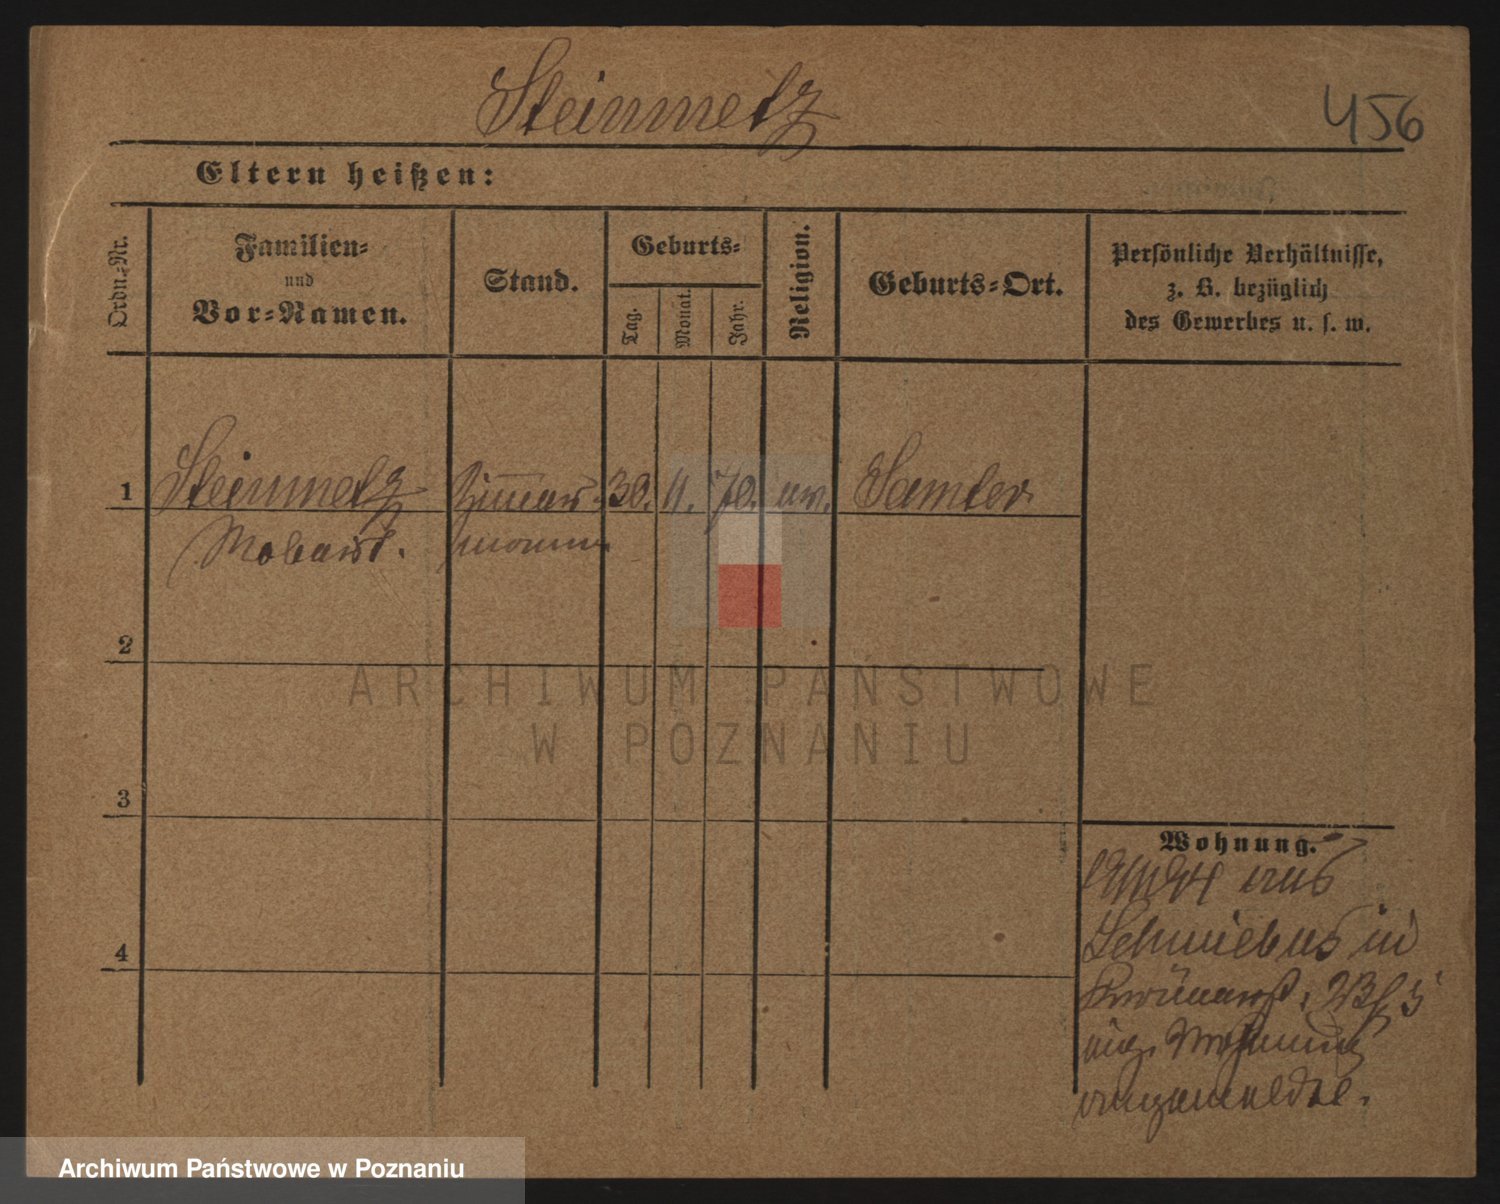 Steinmetz
456
Eltern heißen:
Ordn.-Nr.
Familien-
und
Vor-Namen.
Stand.
Geburts-
Tag.
Monat.
Jahr.
Religion.
Geburts-Ort.
Persönliche Verhältnisse,
z. B. bezüglich
des Gewerbes u. s. w.
1 Steinmetz Zimmer- 30. 11. 70. ev. Samter
Robert. mann
2
3
4
Wohnung.
aus
Schwiebus in
eig. Wohnung
angemeldet.
ARCHIWUM PAŃSTWOWE
W POZNANIU
Archiwum Państwowe w Poznaniu